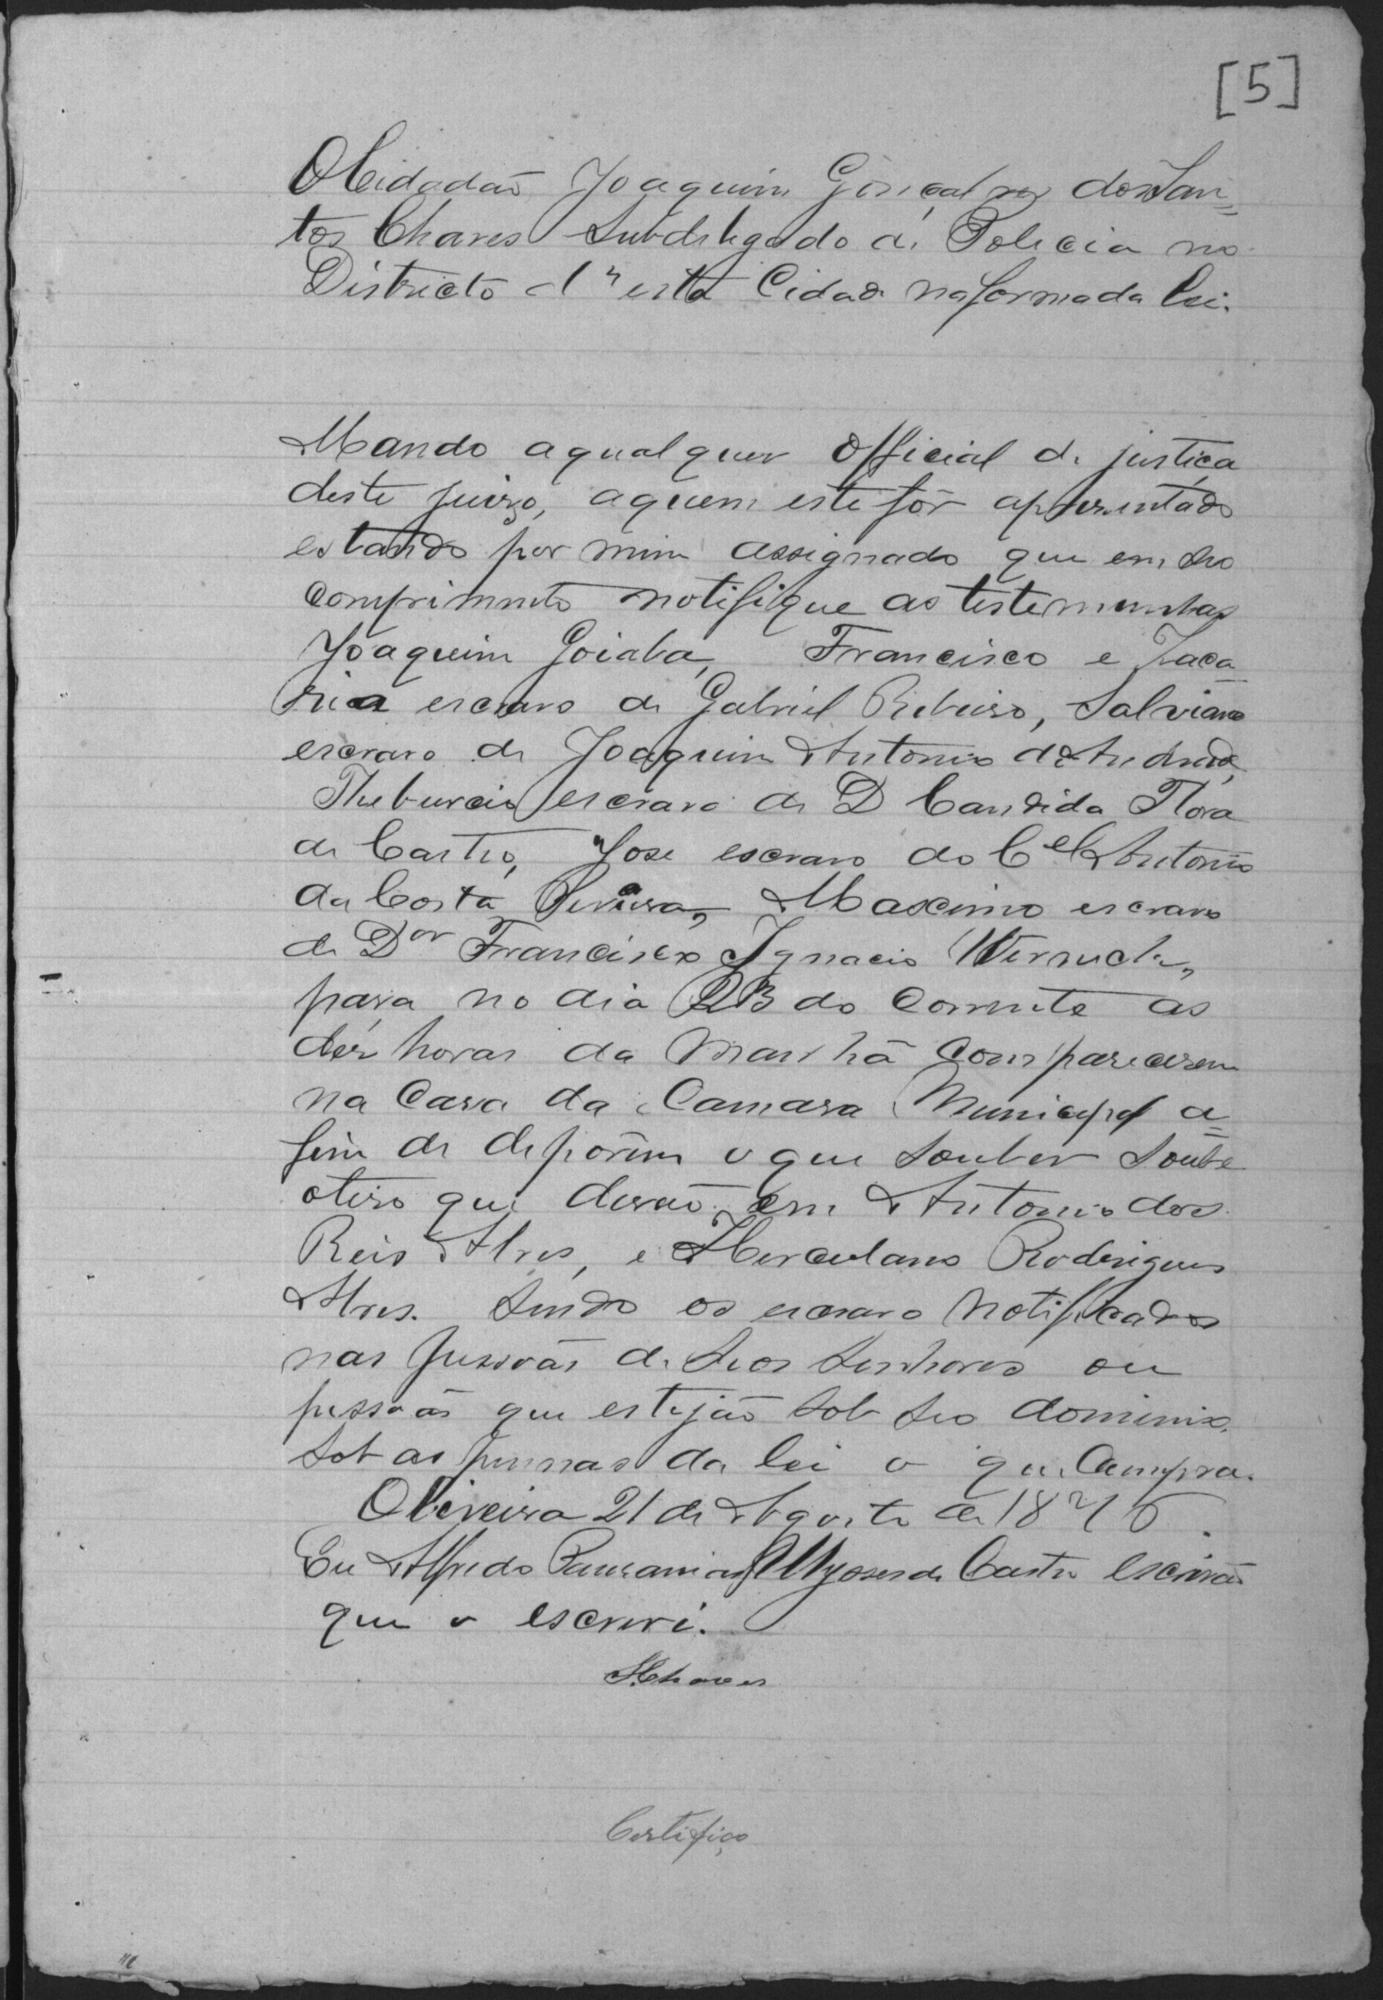 [5]
O Cidadão Joaquim Gonçalves dos San=
tos Chaves Subdelegado de Policia no
Districto d'esta Cidade na forma da lei.
Mando aqualquer Official de justiça
deste juizo, aquem este fôr apresentado
estando por mim assignado que em seo
comprimento notifique as testemunhas
Joaquim Goiaba, Francisco e Zaca
ria escravo de Gabriel Ribeiro, Salviano
escravo de Joaquim Antonio de Andrade,
Theburcio escravo de D Candida Flora
de Castro, Jose escravo do Cel Antonio
da Costa Pereira, Maximo escravo
de Dor Francisco Ignacio Werneck,
para no dia 23 do corrente as
déz horas da manhã comparecerem
na Casa da Camara Municipal a=
fim de deporem o que souber sobre
otiro que derão em Antonio dos
Reis Alves, e Herculano Rodrigues
Alves. Sendo os escravo notificados
nas pessoas de seos senhores ou
pessoas que estejão sob seo dominio,
sob as pennas da lei o que Cumpra.
Oliveira 21 de Agosto de 1876.
Eu Alfredo Pausanias Ulysses de Castro escrivão
que o escrevi.
SChaves
Certifico